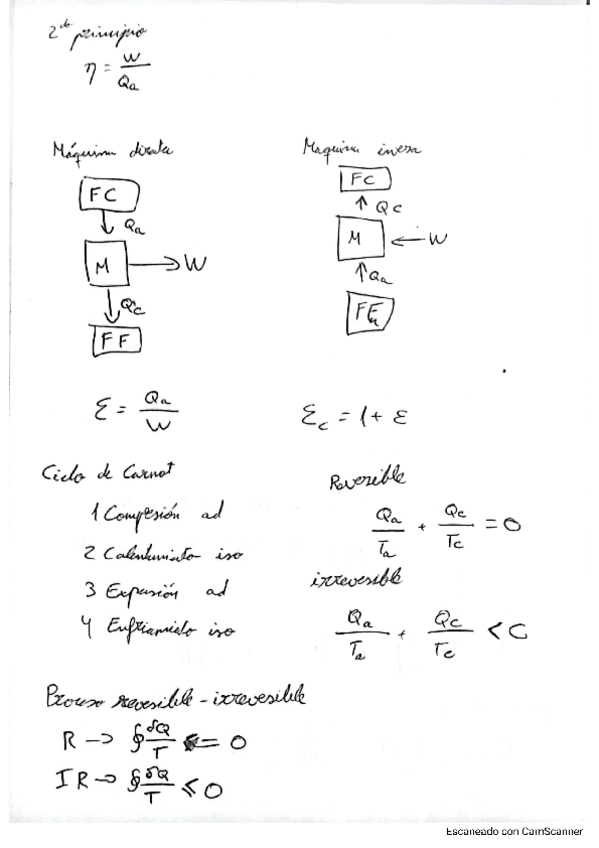 2do principio
η = W/Qa
Máquina directa
Maquina inversa
FC
Qa
M → W
Qc
FF
FC
Qc
M ← W
Qa
FF
Ɛ = Qa/W
Ɛc = 1 + ε
Ciclo de Carnot
1 Compresión ad
2 Calentamiento iso
3 Expansión ad
4 Enfriamiento iso
Reversible
Qa/Ta + Qc/Tc = 0
irreversible
Qa/Ta + Qc/Tc < 0
Proceso reversible - irreversible
R → ∮ δQ/T = 0
IR → ∮ δQ/T ≤ 0
Escaneado con CamScanner